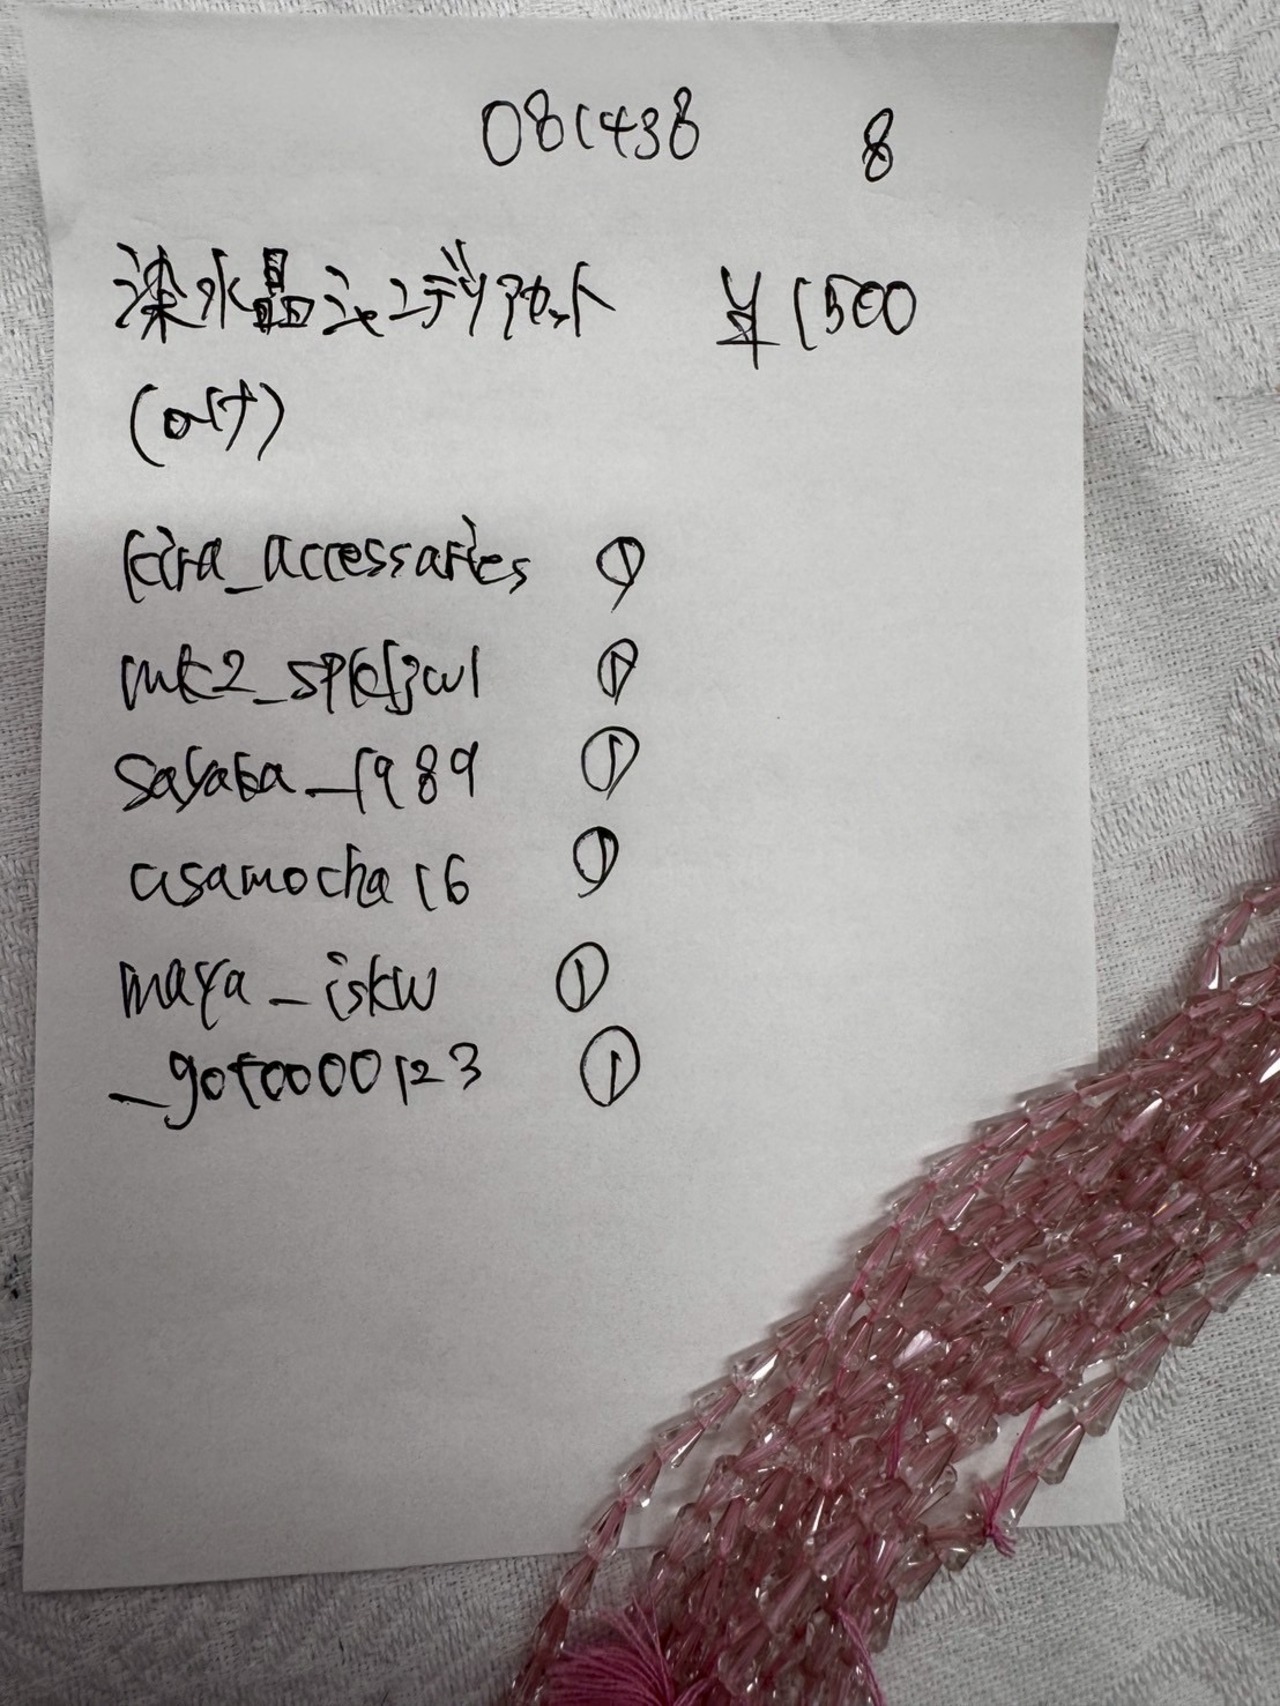 081438 8
染水晶シャンデリアカット ¥1500
kira_accessaries ①
①
sayaka_1989 ①
asamocha16 ①
maya_iskw ①
_gotoooo123 ①